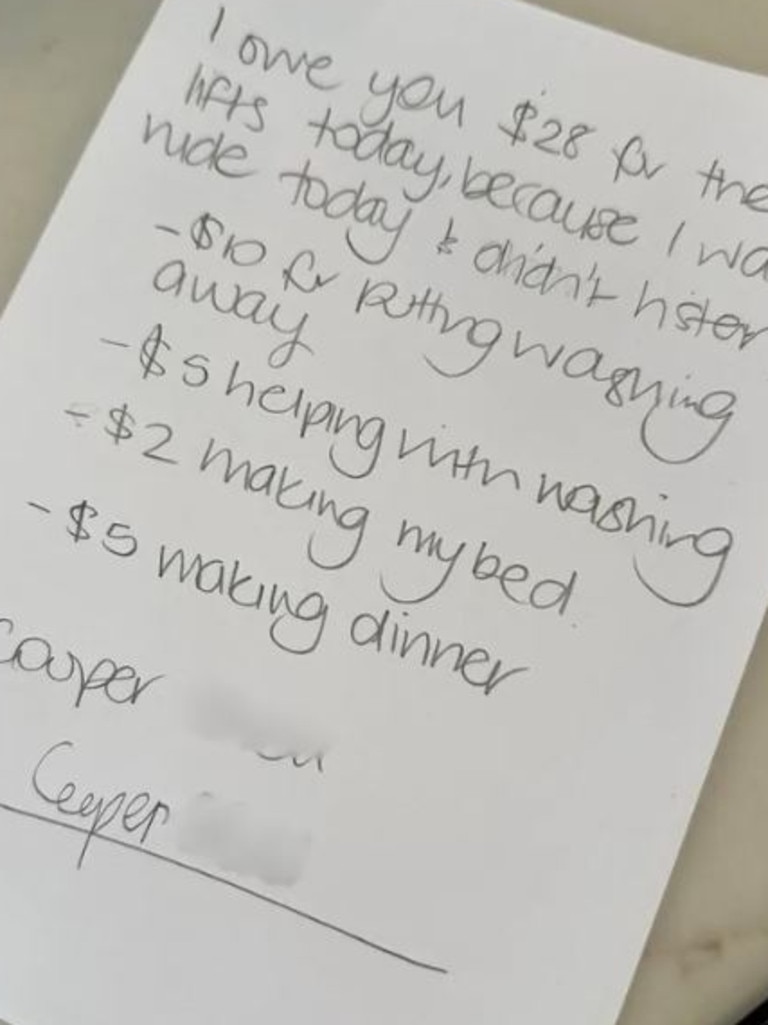 I owe you $28 for the
lifts today, because I wa
rude today & didn't listen
-$10 for putting washing
away
-$5 helping with washing
-$2 making my bed.
-$5 making dinner
Couper
Couper